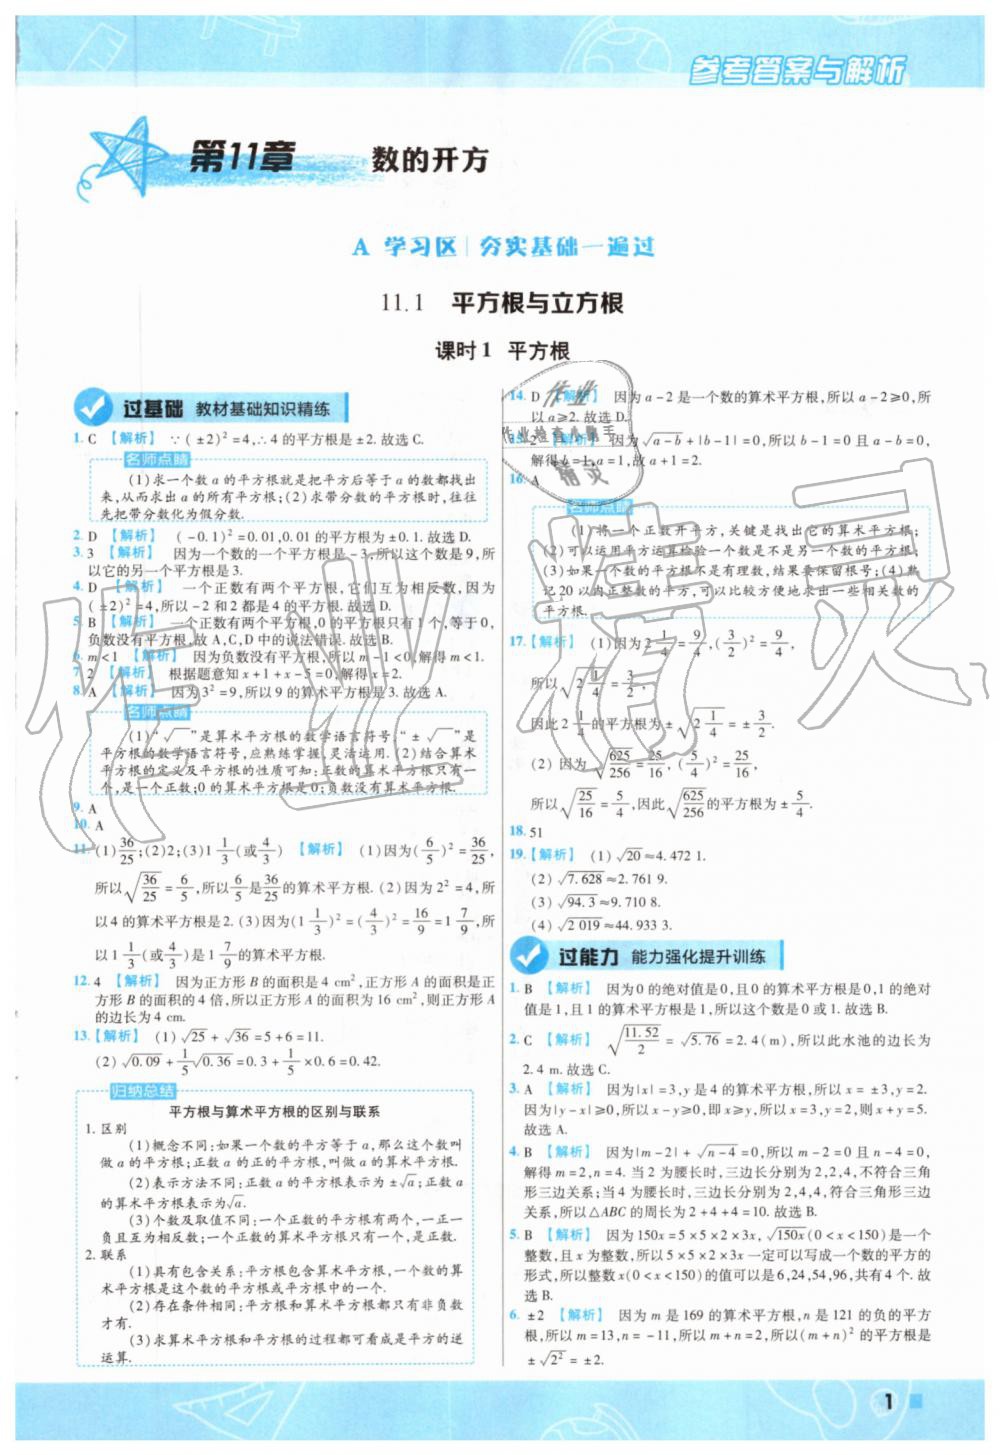 参考答案与解析
第11章 数的开方
A 学习区 | 夯实基础一遍过
11.1 平方根与立方根
课时1 平方根
过基础 教材基础知识精练
1. C 【解析】 ∵(±2)²=4,∴4的平方根是±2.故选C.
名师点睛
(1)求一个数a的平方根就是把平方后等于a的数都找出
来,从而求出a的所有平方根;(2)求带分数的平方根时,往往
先把带分数化为假分数.
2. D 【解析】 (-0.1)²=0.01,0.01的平方根为±0.1.故选D.
3. 3 【解析】 因为一个数的一个平方根是-3,所以这个数是9,所
以它的另一个平方根是3.
4. D 【解析】 一个正数有两个平方根,它们互为相反数,因为
(±2)²=4,所以-2和2都是4的平方根.故选D.
5. B 【解析】 一个正数有两个平方根,0的平方根只有1个,等于0,
负数没有平方根,故A,C,D中的说法错误.故选B.
6. m<1 【解析】 因为负数没有平方根,所以m-1<0,解得m<1.
7. 2 【解析】 根据题意知x+1+x-5=0,解得x=2.
8. A 【解析】 因为3²=9,所以9的算术平方根是3.故选A.
名师点睛
(1)“√‾”是算术平方根的数学语言符号,“±√‾”是
平方根的数学语言符号,应熟练掌握,灵活运用.(2)结合算术
平方根的定义及平方根的性质可知:正数的算术平方根只有一
个,是一个正数;0的算术平方根是0;负数没有算术平方根.
9. A
10. A
11. (1)36/25;(2)2;(3)1 1/3(或4/3) 【解析】 (1)因为(6/5)²=36/25,
所以√(36/25)=6/5,所以6/5是36/25的算术平方根.(2)因为2²=4,所
以4的算术平方根是2.(3)因为(1 1/3)²=(4/3)²=16/9=1 7/9,所
以1 1/3(或4/3)是1 7/9的算术平方根.
12. 4 【解析】 因为正方形B的面积是4 cm²,正方形A的面积是正
方形B的面积的4倍,所以正方形A的面积为16 cm²,则正方形A
的边长为4 cm.
13. 【解析】 (1)√25+√36=5+6=11.
(2)√0.09+1/5√0.36=0.3+1/5×0.6=0.42.
归纳总结
平方根与算术平方根的区别与联系
1. 区别
(1)概念不同:如果一个数的平方等于a,那么这个数叫
做a的平方根;正数a的正的平方根,叫做a的算术平方根.
(2)表示方法不同:正数a的平方根表示为±√a;正数a
的算术平方根表示为√a.
(3)个数及取值不同:一个正数的平方根有两个,一正一
负且互为相反数;一个正数的算术平方根只有一个,是正数.
2. 联系
(1)具有包含关系:平方根包含算术平方根,一个数的算
术平方根是这个数的平方根或平方根中的一个.
(2)存在条件相同:平方根和算术平方根都只有非负数
才有.
(3)求算术平方根和平方根的过程都可看成是平方的逆
运算.
14. D 【解析】 因为a-2是一个数的算术平方根,所以a-2≥0,所
以a≥2.故选D.
15. 2 【解析】 因为√(a-b)+|b-1|=0,所以b-1=0且a-b=0,
解得b=1,a=1,故a+1=2.
16. A
名师点睛
(1)将一个正数开平方,关键是找出它的算术平方根;
(2)可以运用平方运算检验一个数是不是另一个数的平方根;
(3)如果一个数的平方根不是有理数,结果要保留根号;(4)熟
记20以内正整数的平方,可以比较方便地求出一些相关数的
平方根.
17. 【解析】 (1)因为2 1/4=9/4,(3/2)²=9/4,
所以√(2 1/4)=3/2,
因此2 1/4的平方根为±√(2 1/4)=±3/2.
(2)因为√(625/256)=25/16,(5/4)²=25/16,
所以√(25/16)=5/4,因此√(625/256)的平方根为±5/4.
18. 51
19. 【解析】 (1)√20≈4.472 1.
(2)√7.628≈2.761 9.
(3)√94.3≈9.710 8.
(4)√2 019≈44.933 3.
过能力 能力强化提升训练
1. B 【解析】 因为0的绝对值是0,且0的算术平方根是0,1的绝对
值是1,且1的算术平方根是1,所以这个数是0或1.故选B.
2. C 【解析】 √(11.52/2)=√5.76=2.4(m),所以此水池的边长为
2.4 m.故选C.
3. A 【解析】 因为|x|=3,y是4的算术平方根,所以x=±3,y=2.
因为|y-x|≥0,所以x-y≥0,即x≥y,所以x=3,y=2,则x+y=5.
故选A.
4. B 【解析】 因为|m-2|+√(n-4)=0,所以m-2=0且n-4=0,
解得m=2,n=4.当2为腰长时,三边长分别为2,2,4,不符合三角
形三边关系;当4为腰长时,三边长分别为2,4,4,符合三角形三边
关系,所以△ABC的周长为2+4+4=10.故选B.
5. B 【解析】 因为150x=5×5×2×3x,√150x(0<x<150)是一个
整数,且x为整数,所以5×5×2×3x一定可以写成一个数的平方的
形式,所以整数x(0<x<150)的值可以是6,24,54,96,共有4个.故
选B.
6. ±2 【解析】 因为m是169的算术平方根,n是121的负的平方
根,所以m=13,n=-11,所以m+n=2,所以(m+n)²的平方根是
±√2²=±2.
1
作业
作业检查小助手
精灵
作业精灵